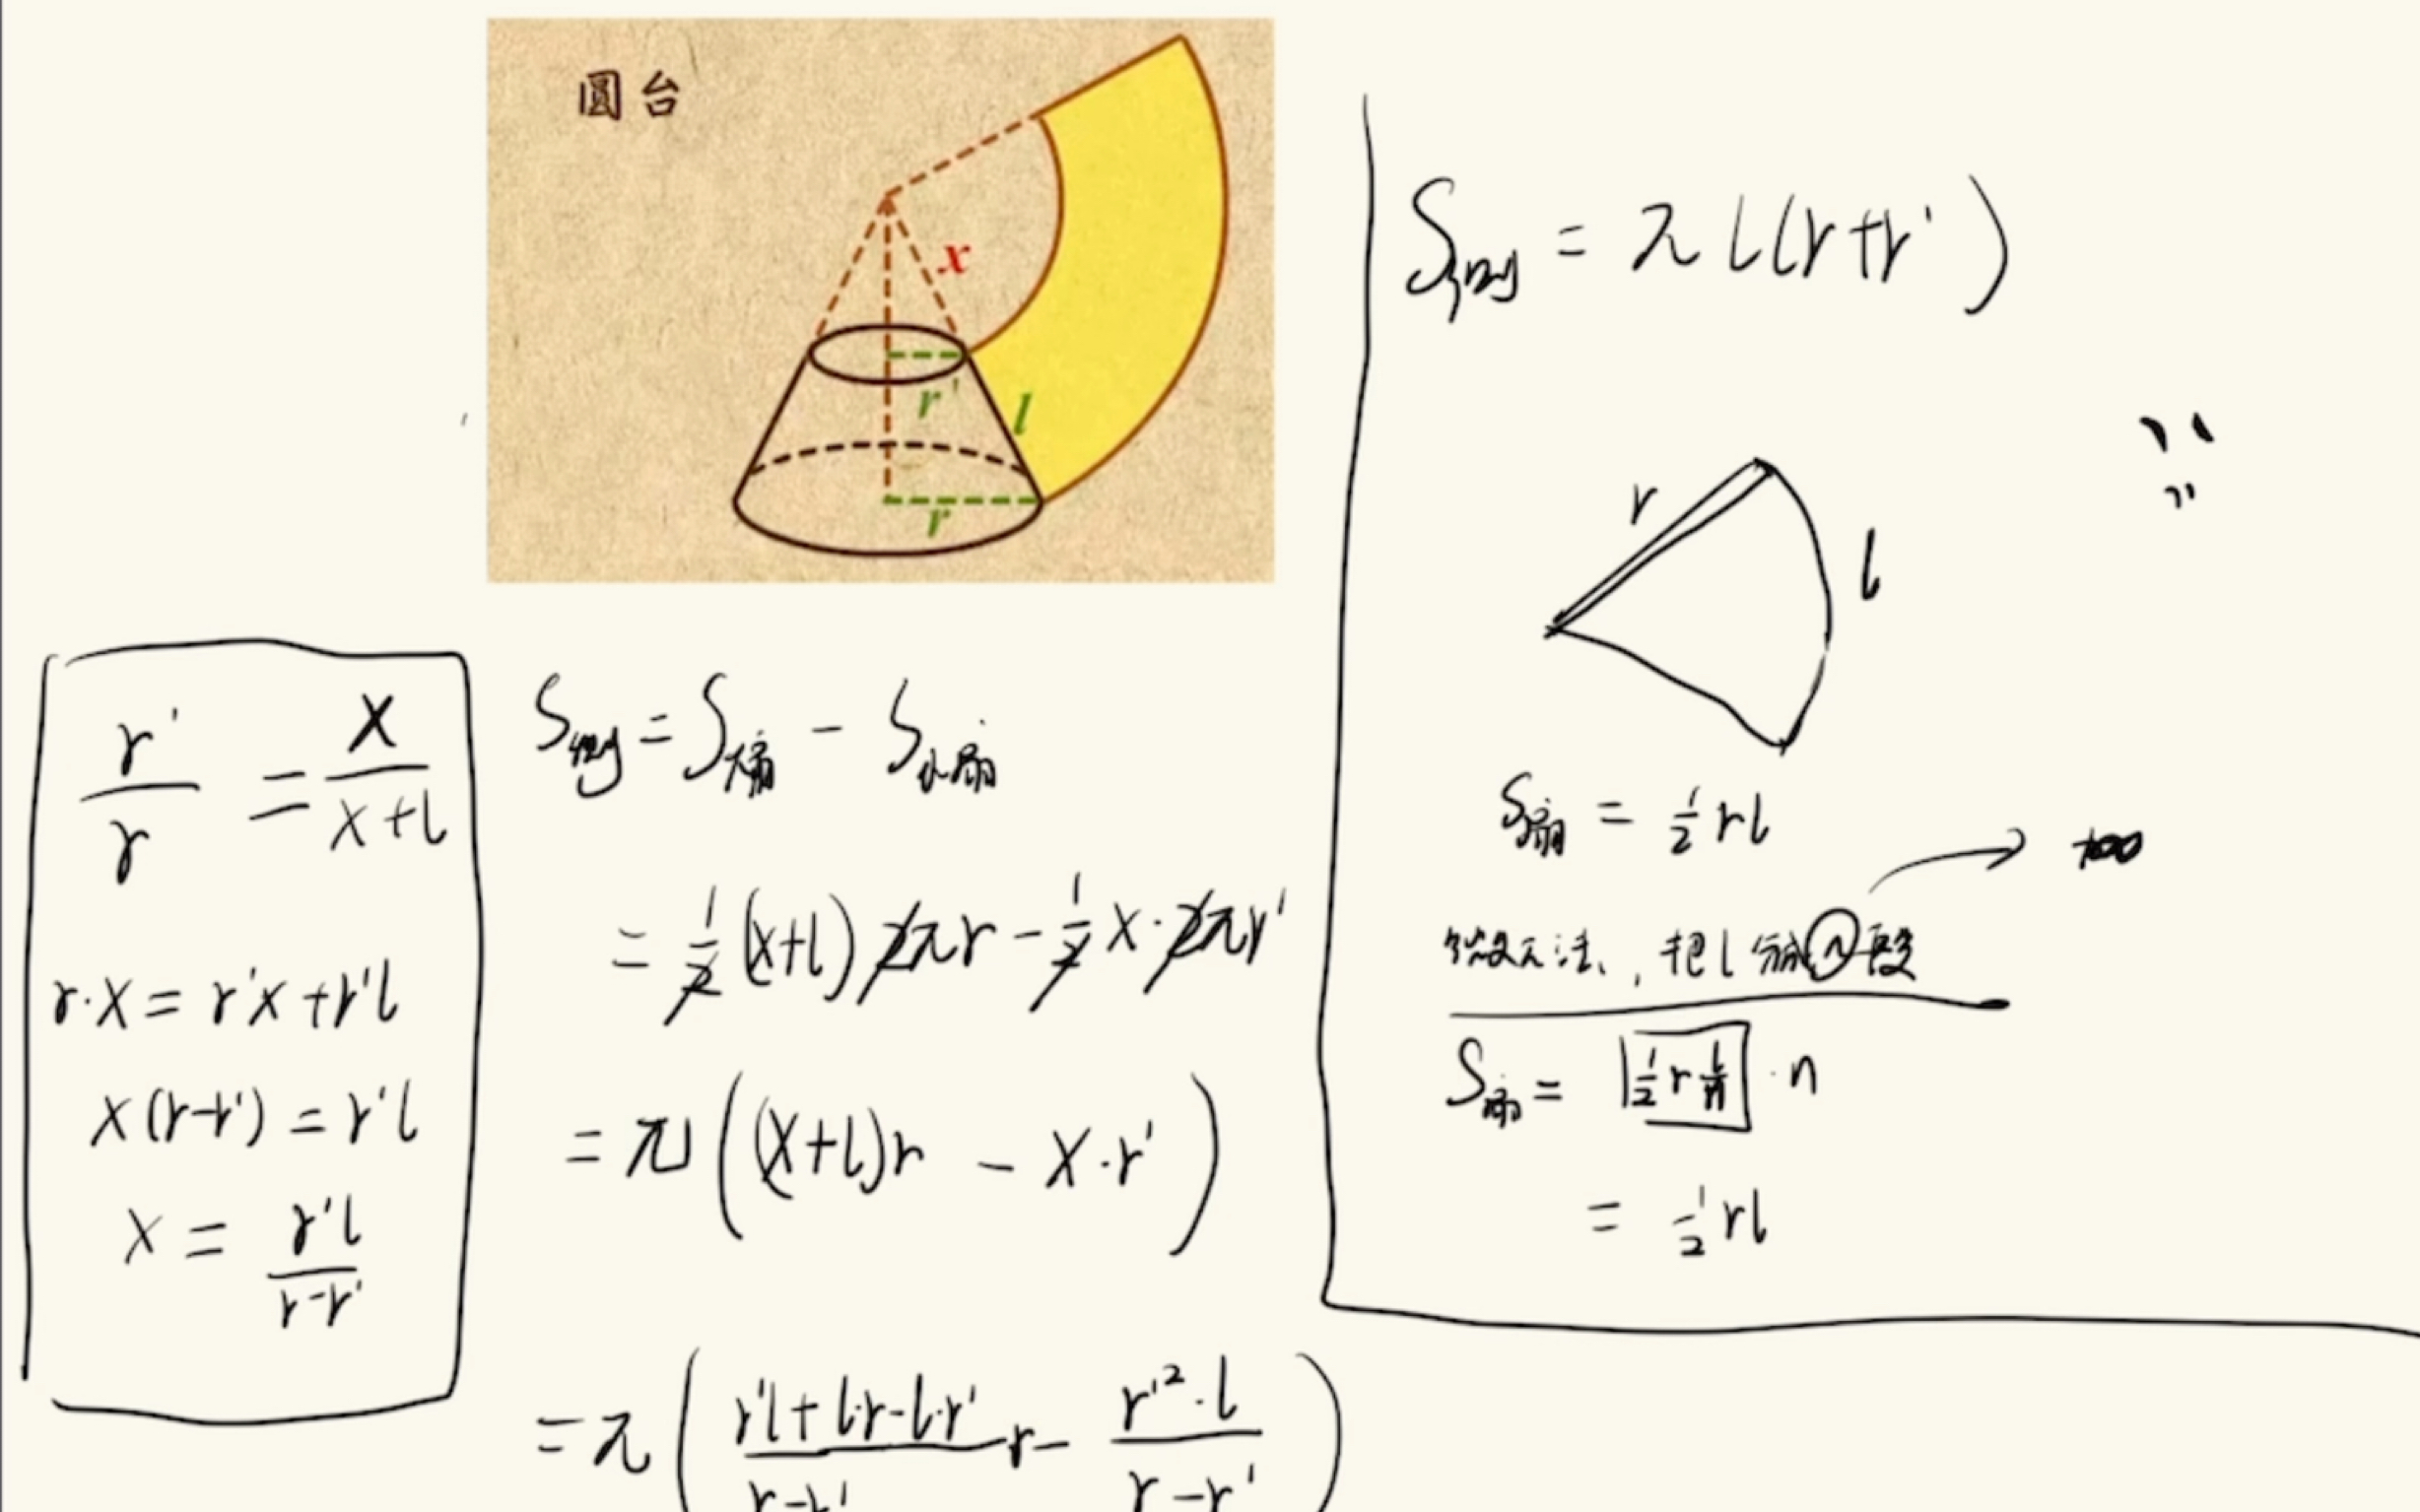 圓台
x
r'
l
r
r'/r = x/(x+l)
r·x = r'x + r'l
x(r-r') = r'l
x = r'l/(r-r')
S侧 = S大扇 - S小扇
= 1/2 (x+l) 2πr - 1/2 x·2πr'
= π((x+l)r - x·r')
= π((r'l+l·r-l·r')/(r-r') r - r'²·l/(r-r'))
S侧 = πl(r+r')
r
l
S扇 = 1/2 rl
把l分成n段
S扇 = 1/2 r l/n · n
= 1/2 rl